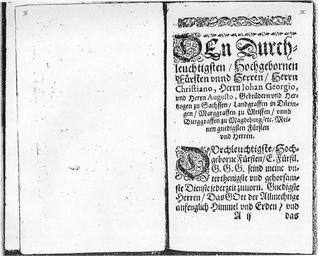 DEn Durch-
leuchtigsten / Hochgebornen
Fürsten vnnd Herren / Herrn
Christiano, Herrn Iohan Georgio,
vnd Herrn Augusto, Gebrüdern vnd Her-
tzogen zu Sachssen / Landgraffen in Dürin-
gen / Marggraffen zu Meissen / vnnd
Burggraffen zu Magdeburg / etc. Mei-
nen gnedigsten Fürsten
vnd Herren.
DVrchleuchtigste / Hoch-
geborne Fürsten / E. Fürstl.
G. G. G. seind meine vn-
terthenigste vnd gehorsam-
ste Dienste jederzeit zuuorn. Gnedigste
Herren / Das GOtt der Allmechtige
anfenglich Himmel vnd Erden / vnd
A ij das